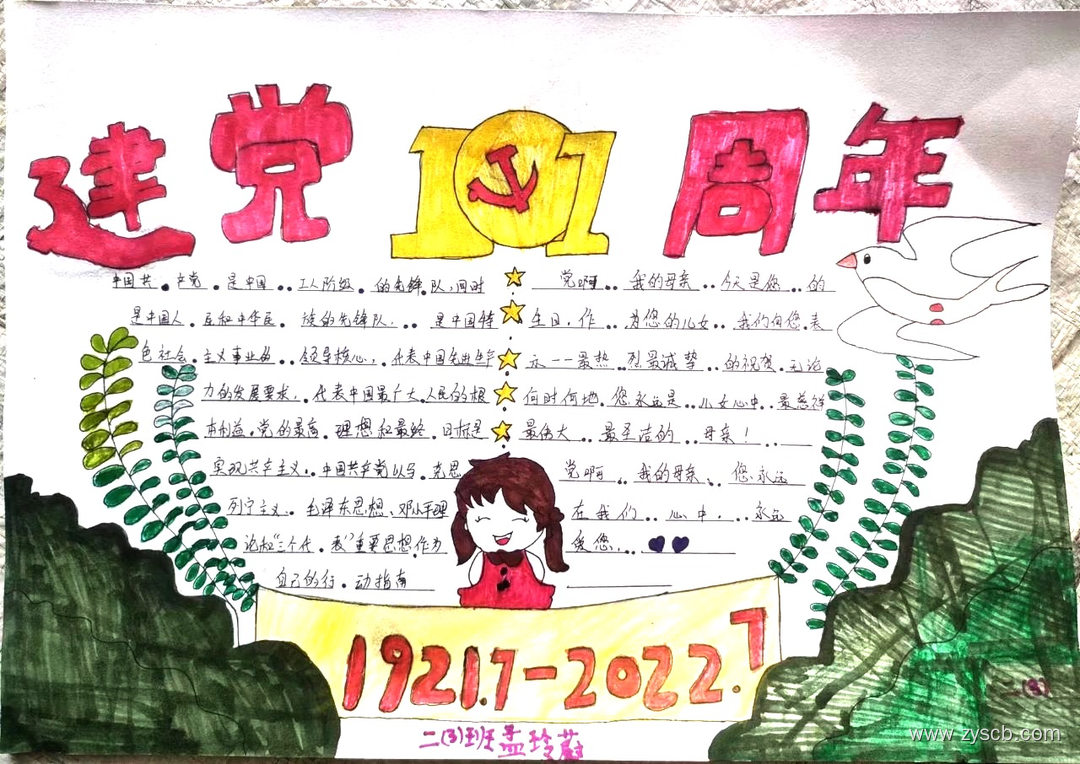 建党101周年
中国共产党是中国工人阶级的先锋队,同时
是中国人民和中华民族的先锋队,是中国特
色社会主义事业的领导核心,代表中国先进生产
力的发展要求,代表中国最广大人民的根
本利益.党的最高理想和最终目标是
实现共产主义.中国共产党以马克思
列宁主义.毛泽东思想、邓小平理
论和“三个代表”重要思想作为
自己的行动指南
党啊..我的母亲..今天是您..的
生日,作..为您的儿女..我们向您表
示一一最热烈最诚挚..的祝贺.无论
何时何地.您永远是..儿女心中..最慈祥
最伟大..最圣洁的..母亲!
党啊..我的母亲..您永远
在我们..心中...永远
爱您...
1921.7-2022.7
二(3)班孟玲
二(3)
www.zyscb.com